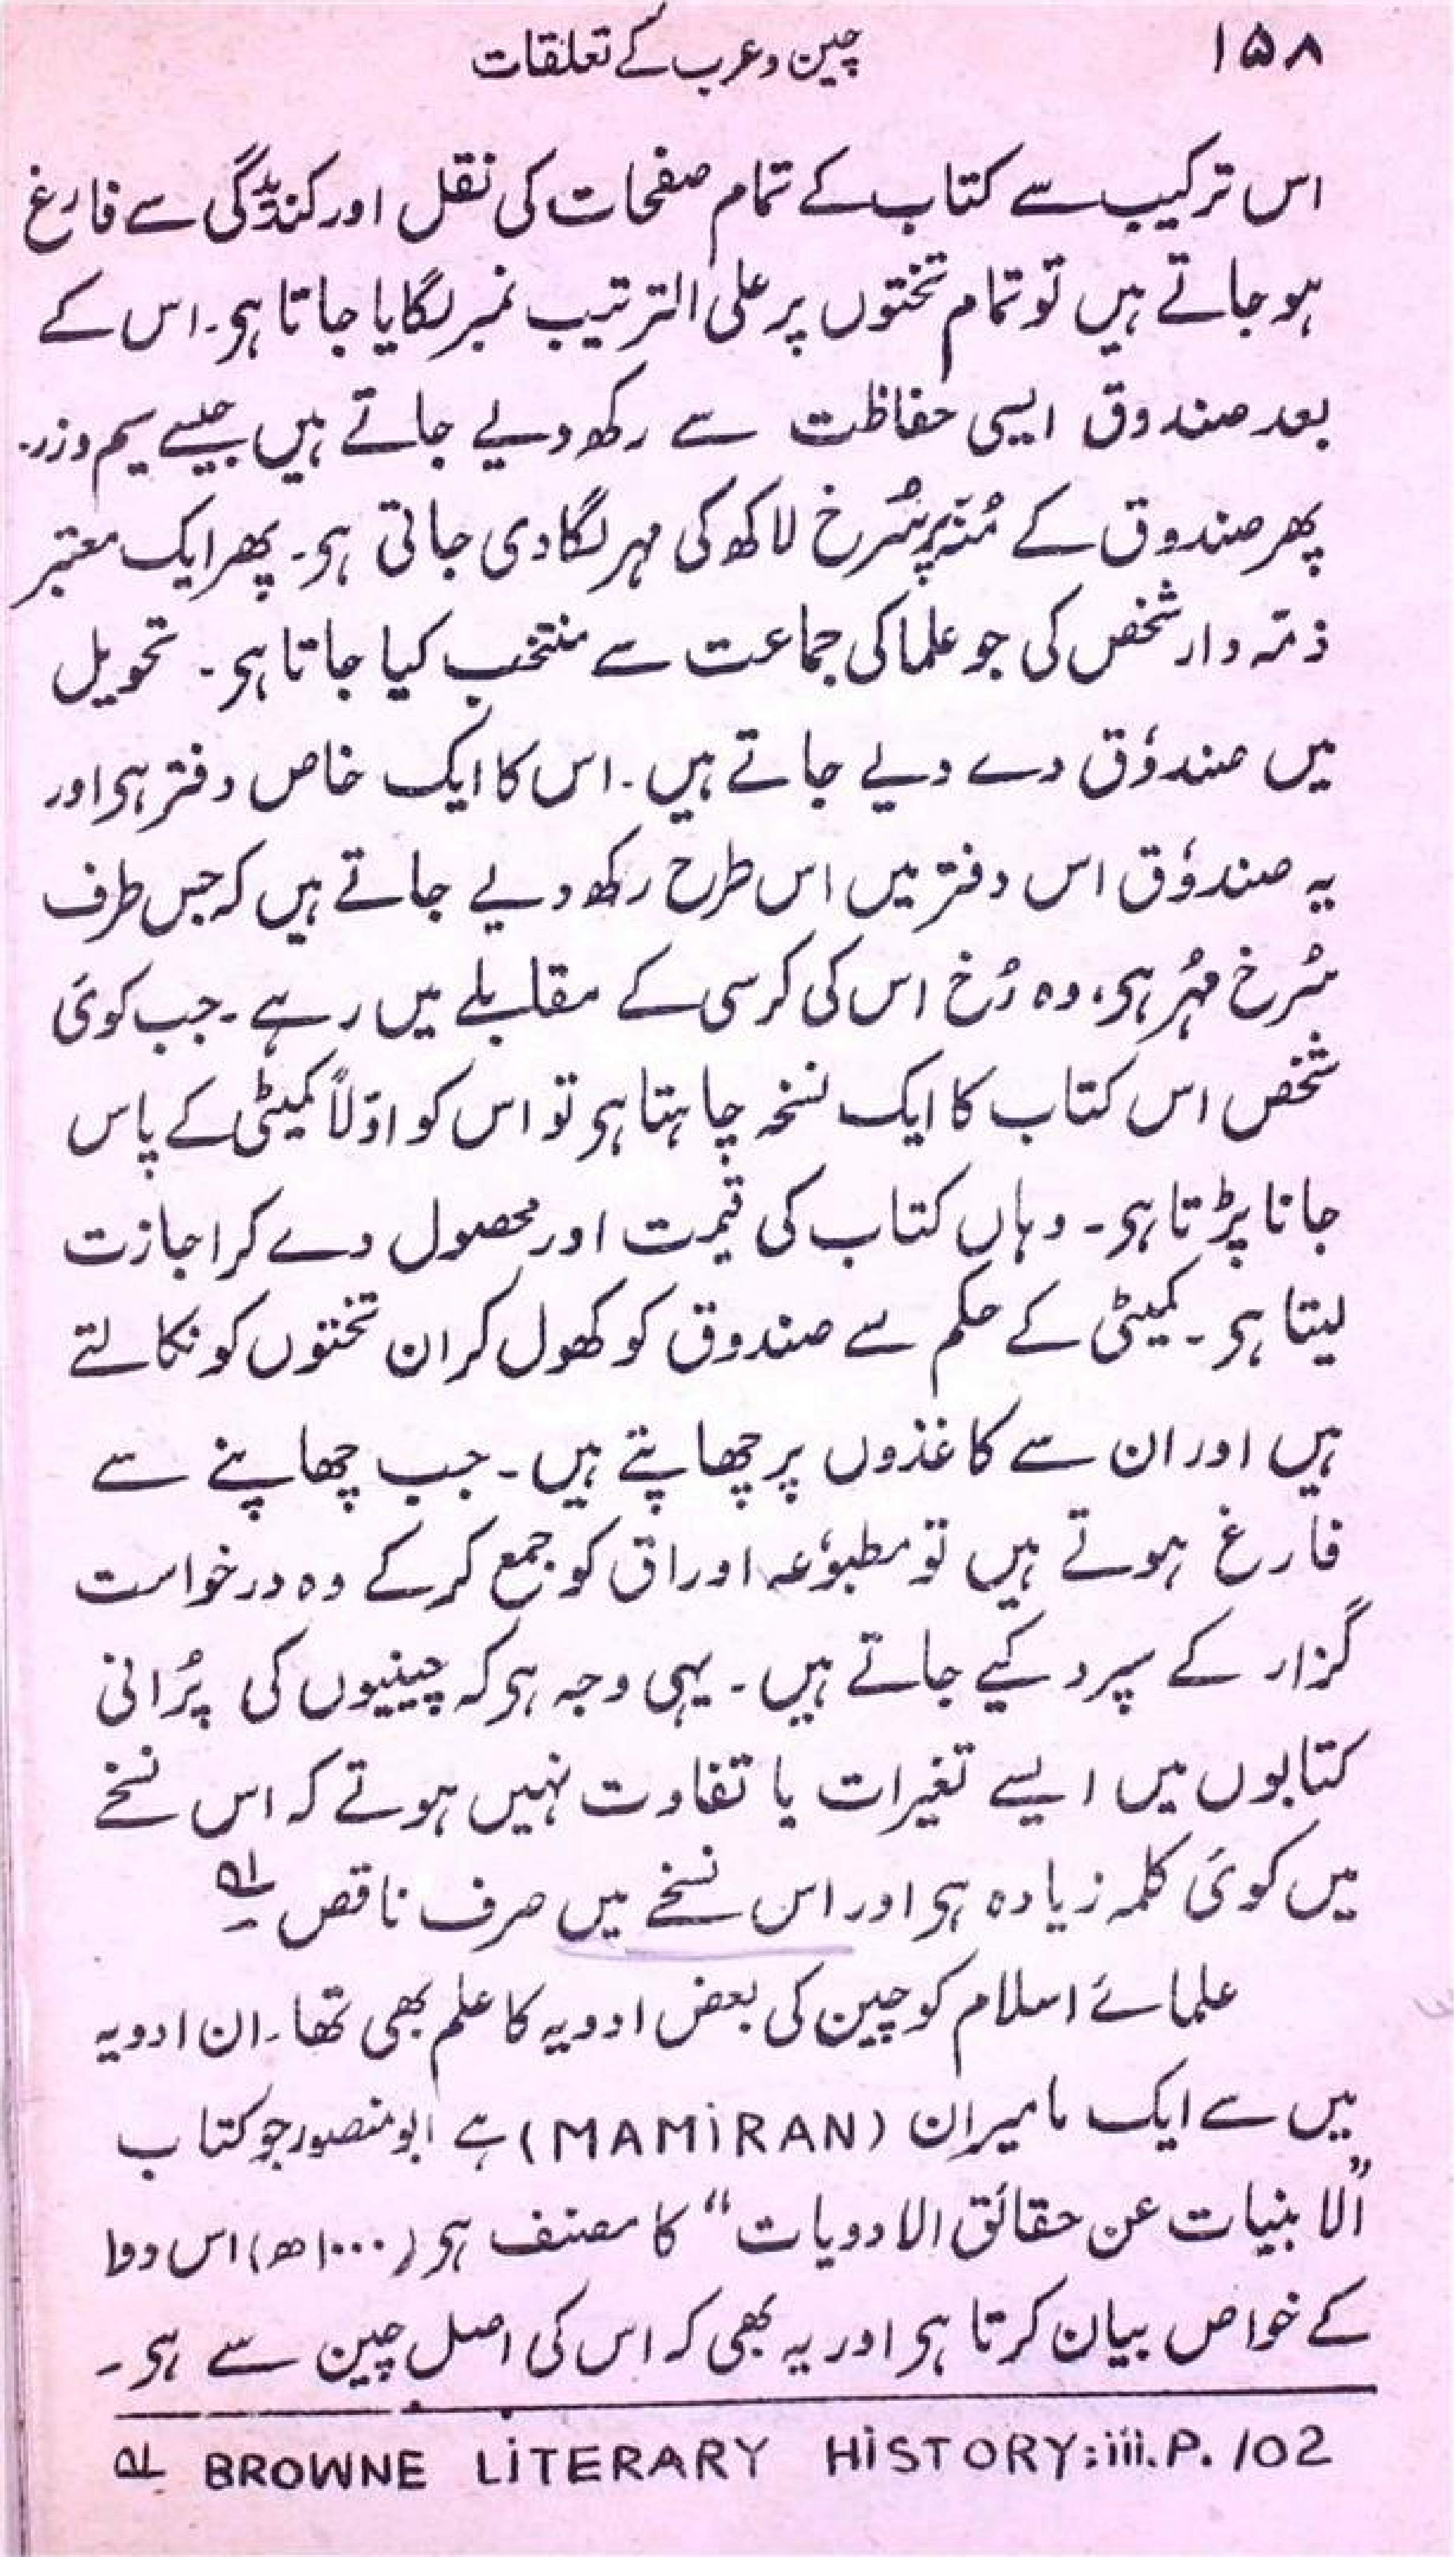 ۱۵۸
چین و عرب کے تعلقات
اس ترکیب سے کتاب کے تمام صفحات کی نقل اور کنندگی سے فارغ
ہو جاتے ہیں تو تمام تختوں پر علی الترتیب نمبر لگایا جاتا ہی۔ اس کے
بعد صندوق ایسی حفاظت سے رکھ دیے جاتے ہیں جیسے سیم و زر۔
پھر صندوق کے مُنہ پر سُرخ لاکھ کی مہر لگا دی جاتی ہی۔ پھر ایک معتبر
ذمّہ دار شخص کی جو علما کی جماعت سے منتخب کیا جاتا ہی۔ تحویل
میں صندوٗق دے دیے جاتے ہیں۔ اس کا ایک خاص دفتر ہی اور
یہ صندوٗق اس دفتر میں اس طرح رکھ دیے جاتے ہیں کہ جس طرف
سُرخ مُہر ہی، وہ رُخ اس کی کرسی کے مقابلے میں رہے۔ جب کوئی
شخص اس کتاب کا ایک نسخہ چاہتا ہی تو اس کو اوّلاً کمیٹی کے پاس
جانا پڑتا ہی۔ وہاں کتاب کی قیمت اور محصول دے کر اجازت
لیتا ہی۔ کمیٹی کے حکم سے صندوق کو کھول کر ان تختوں کو نکالتے
ہیں اور ان سے کاغذوں پر چھاپتے ہیں۔ جب چھاپنے سے
فارغ ہوتے ہیں تو مطبوٗعہ اوراق کو جمع کر کے وہ درخواست
گزار کے سپرد کیے جاتے ہیں۔ یہی وجہ ہی کہ چینیوں کی پُرانی
کتابوں میں ایسے تغیرات یا تفاوت نہیں ہوتے کہ اس نسخے
میں کوئی کلمہ زیادہ ہی اور اس نسخے میں صرف ناقص لہ
علمائے اسلام کو چین کی بعض ادویہ کا علم بھی تھا۔ ان ادویہ
میں سے ایک مامیران (MAMiRAN) ہے ابو منصور جو کتاب
”الابنیات عن حقائق الادویات“ کا مصنف ہی (۱۰۰۰ھ) اس دوا
کے خواص بیان کرتا ہی اور یہ بھی کہ اس کی اصل چین سے ہی۔
لہ BROWNE LiTERARY HiSTORY:iii.P.102